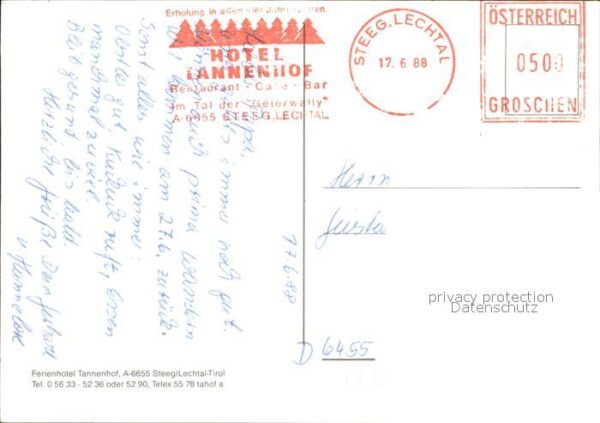 Erholung in allen vier Jahreszeiten
HOTEL
TANNENHOF
Restaurant - Café - Bar
im Tal der "Geierwally"
A-6655 STEEG, LECHTAL
STEEG, LECHTAL
17. 6 88
ÖSTERREICH
0500
GROSCHEN
immer noch gut.
auch prima wandern
kommen am 27.6. zurück.
Sonst alles wie immer:
Obstes gut, Kuckuck ruft, Essen
manchmal zuviel.
Bleib gesund, bis bald
Herzliche Grüße Dein
u. Hannelore
17.6.88
Herrn
D 6455
privacy protection
Datenschutz
Ferienhotel Tannenhof, A-6655 Steeg/Lechtal-Tirol
Tel. 0 56 33 - 52 36 oder 52 90, Telex 55 78 tahof a